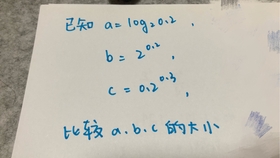 已知 a = log₂0.2 ,
b = 2^0.2 ,
c = 0.2^0.3 ,
比较 a. b. c 的大小